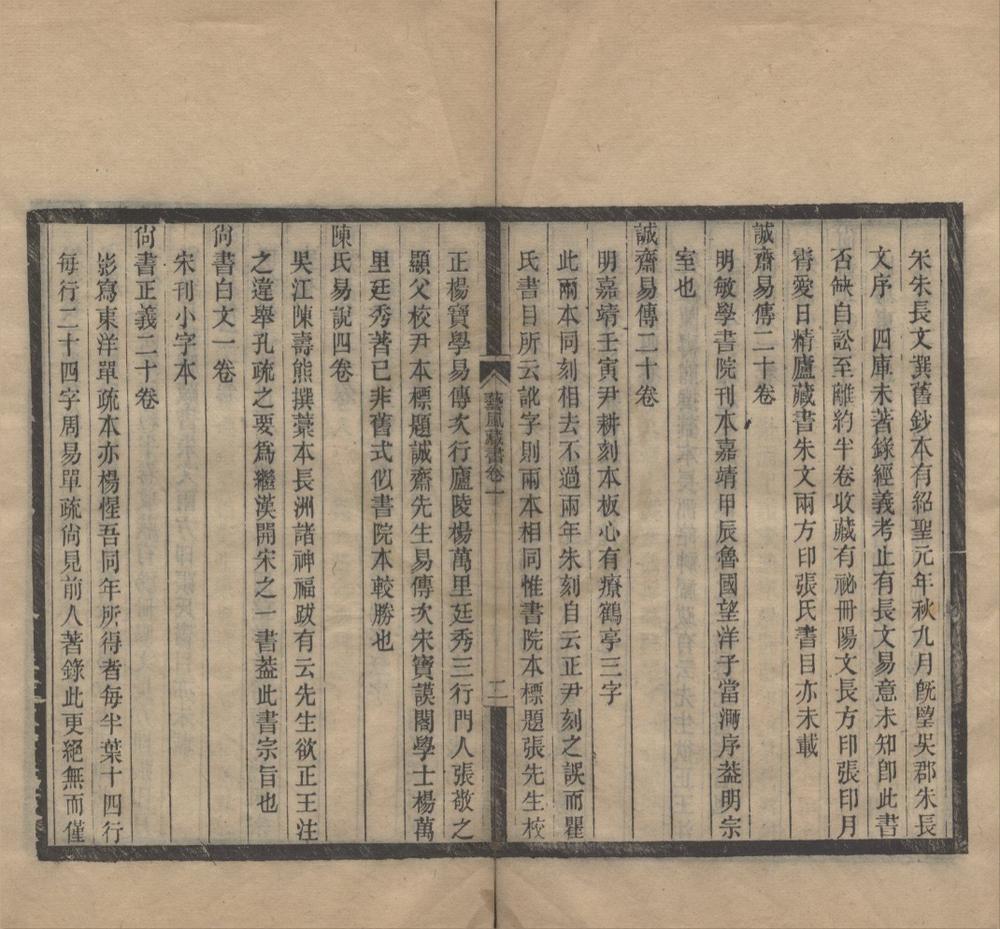 宋朱長文撰舊鈔本有紹聖元年秋九月旣望吳郡朱長
文序　四庫未著錄經義考止有長文易意未知卽此書
否缺自訟至離約半卷收藏有祕冊陽文長方印張印月
霄愛日精廬藏書朱文兩方印張氏書目亦未載
誠齋易傳二十卷
明敏學書院刊本嘉靖甲辰魯國望洋子當㳽序葢明宗
室也
誠齋易傳二十卷
明嘉靖壬寅尹耕刻本板心有療鶴亭三字
此兩本同刻相去不過兩年朱刻自云正尹刻之誤而瞿
氏書目所云訛字則兩本相同惟書院本標題張先生校
藝風藏書卷一
二
正楊寶學易傳次行廬陵楊萬里廷秀三行門人張敬之
顯父校尹本標題誠齋先生易傳次宋寶謨閣學士楊萬
里廷秀著已非舊式似書院本較勝也
陳氏易說四卷
吳江陳壽熊撰藁本長洲諸福坤跋有云先生欲正王注
之違舉孔疏之要爲繼漢開宋之一書葢此書宗旨也
尙書白文一卷
宋刊小字本
尙書正義二十卷
影寫東洋單疏本亦楊惺吾同年所得者每半葉十四行
每行二十四字周易單疏尙見前人著錄此更絕無而僅